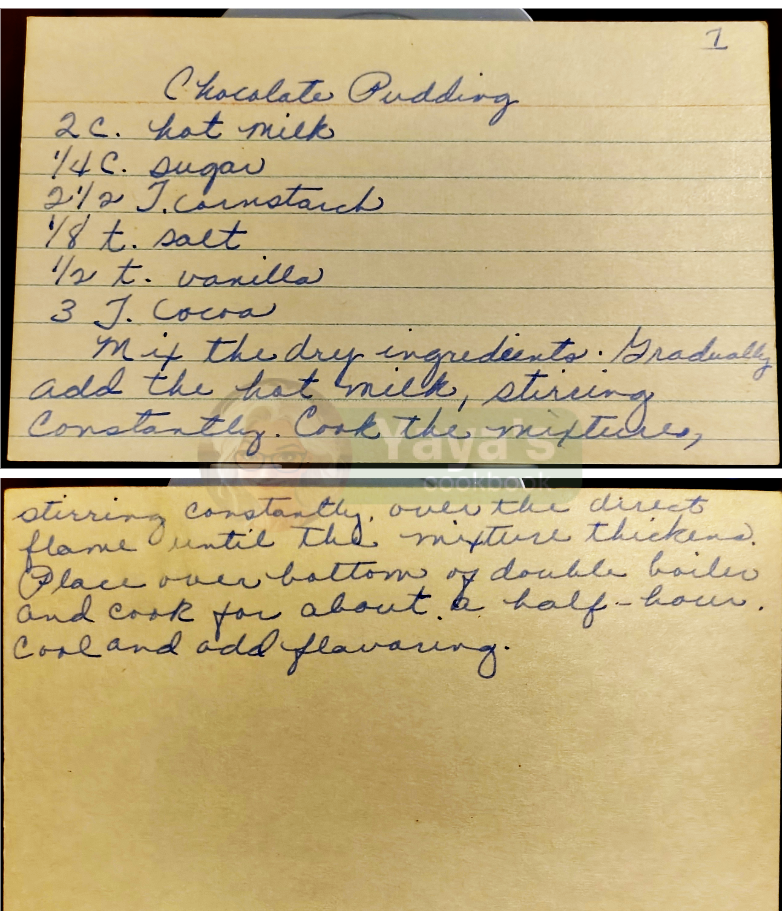 1
Chocolate Pudding
2 C. hot milk
1/4 C. sugar
2 1/2 T. cornstarch
1/8 t. salt
1/2 t. vanilla
3 T. Cocoa
Mix the dry ingredients. Gradually
add the hot milk, stirring
constantly. Cook the mixture,
Yaya's
Cookbook
stirring constantly, over the direct
flame until the mixture thickens.
Place over bottom of double boiler
and cook for about a half-hour.
Cool and add flavoring.